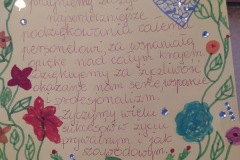 pragniemy złożyć
najserdeczniejsze
podziękowania całemu
personelowi, za wspaniałą
opiekę nad całym krajem
Dziękujemy za życzliwość
okazane nam serce, wsparcie
i profesjonalizm.
Życzymy wielu
sukcesów w życiu
prywatnym i jak
zawodowym.